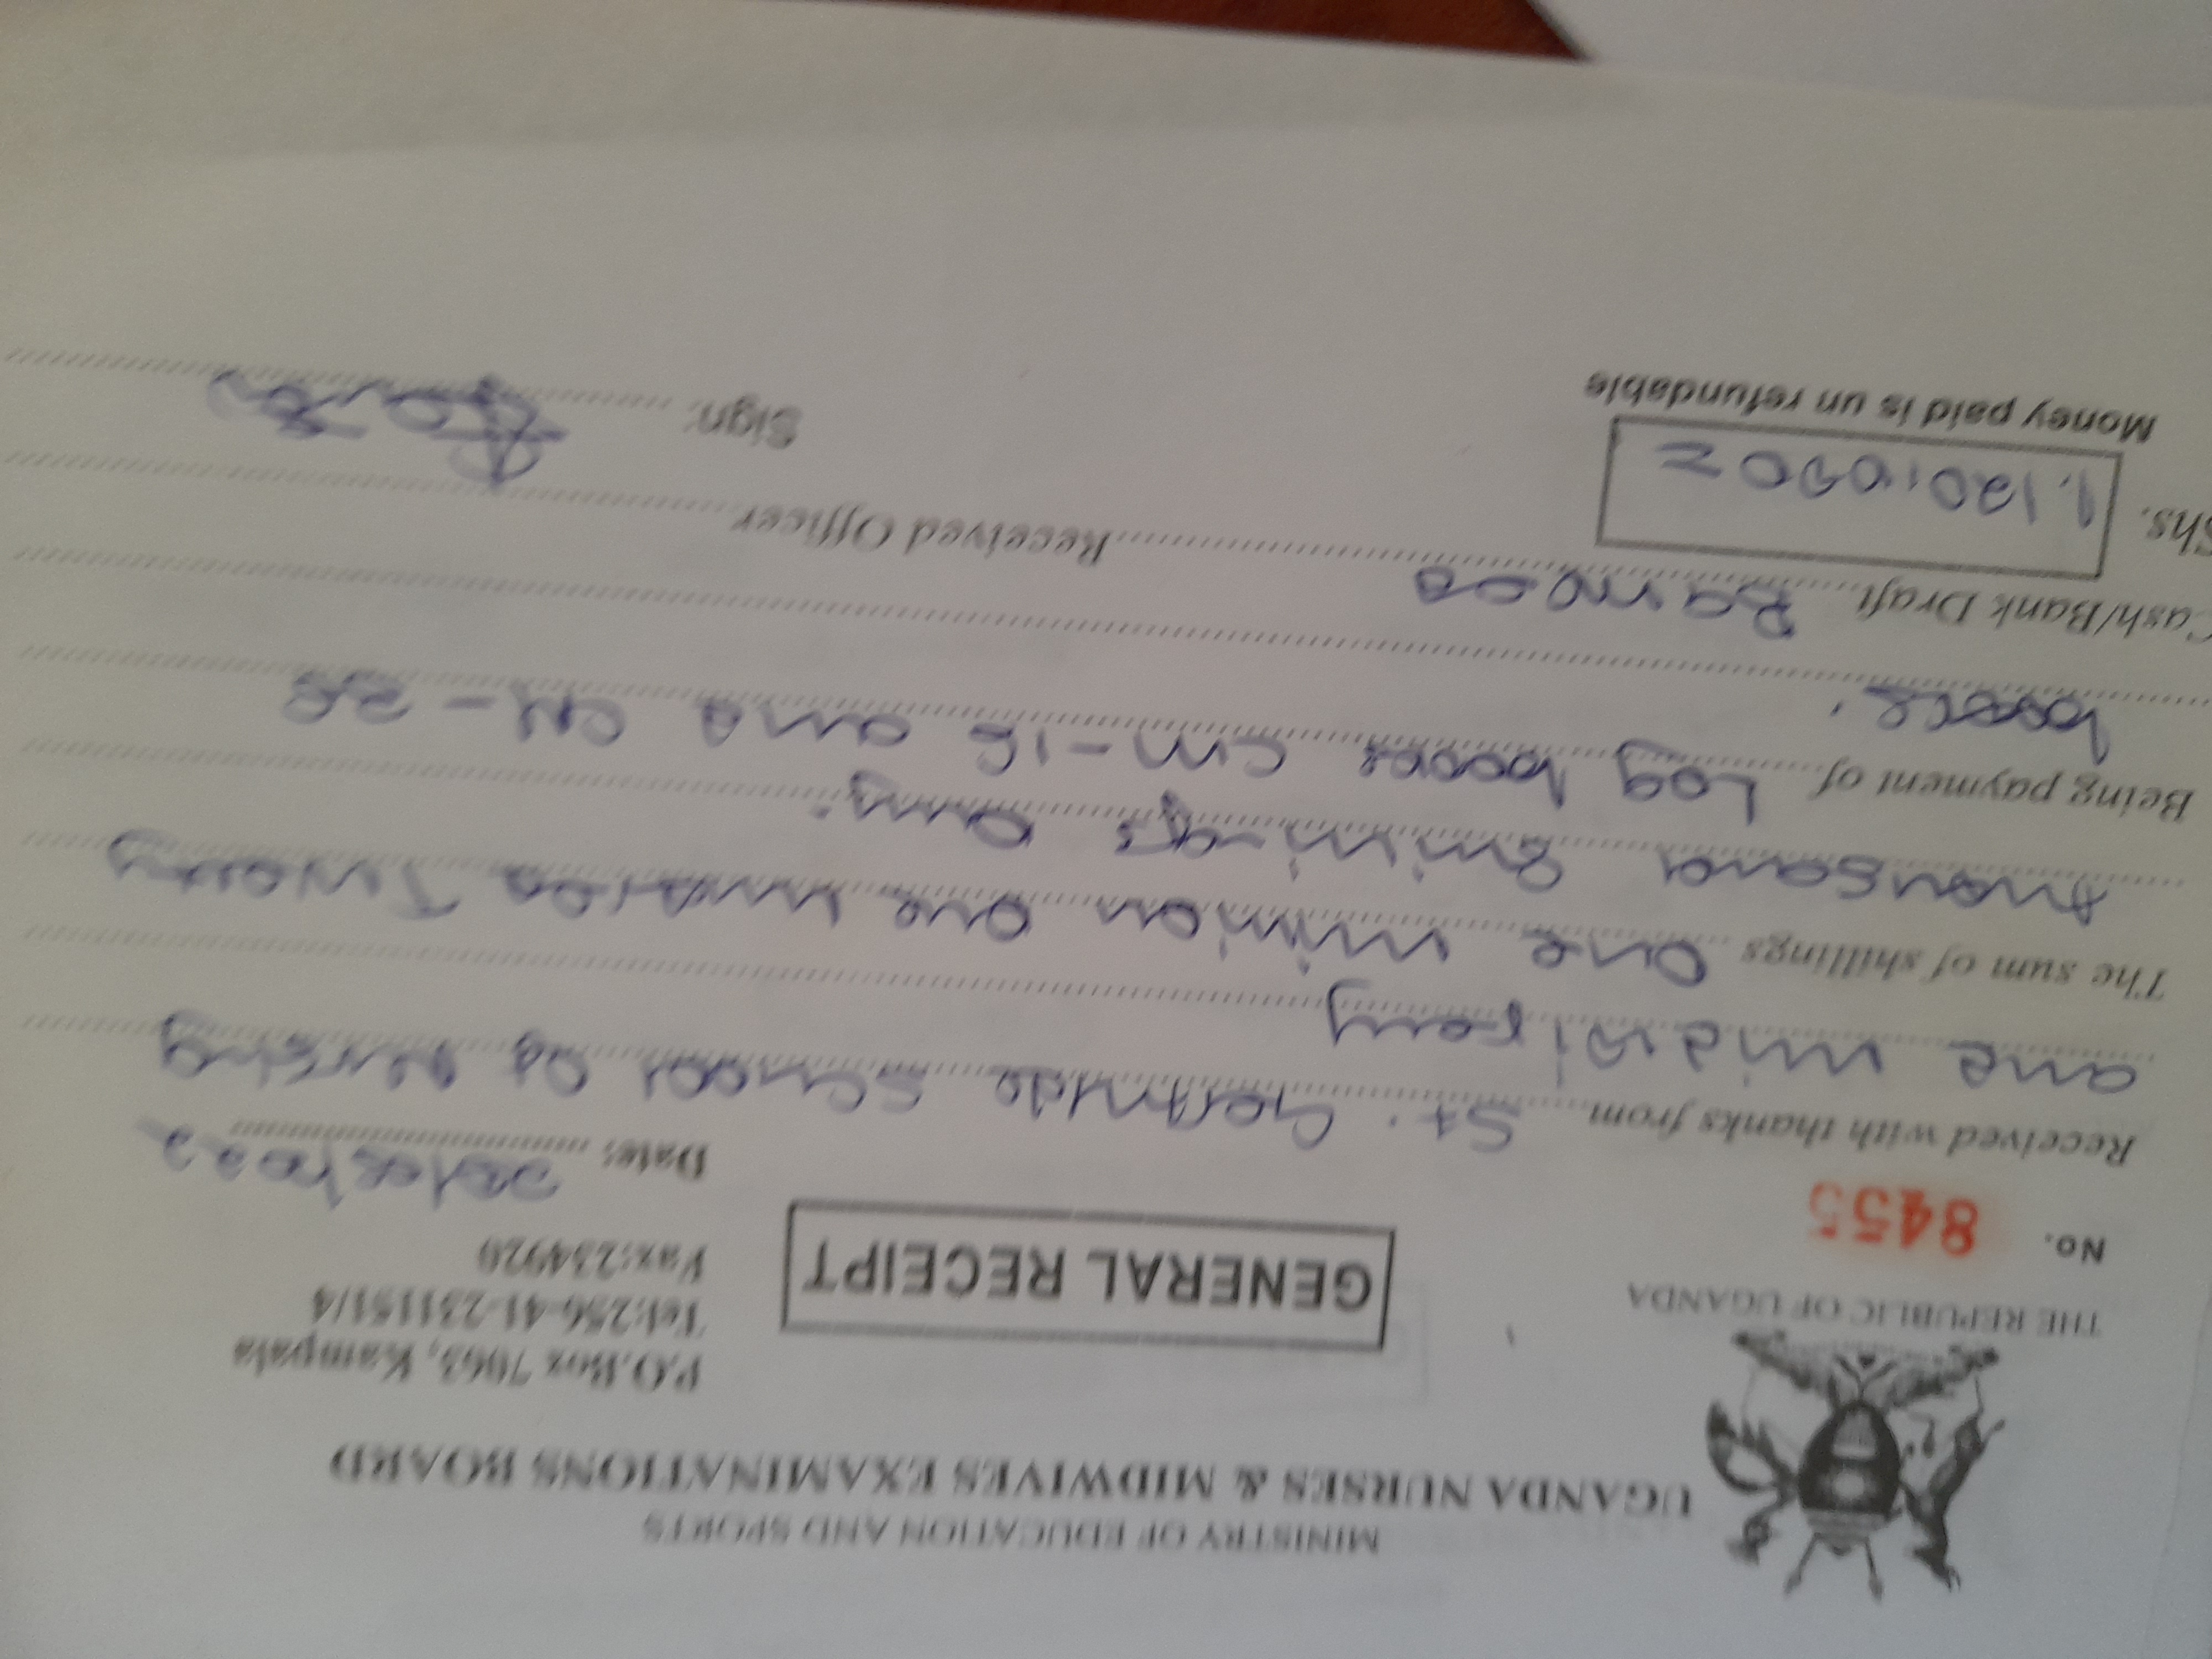 MINISTRY OF EDUCATION AND SPORTS
UGANDA NURSES & MIDWIVES EXAMINATIONS BOARD
THE REPUBLIC OF UGANDA
P.O.Box 7063, Kampala
Tel:256-41-231151/4
Fax:234920
GENERAL RECEIPT
No. 8455
Date:
Received with thanks from St. Gertrude School of Nursing
and midwifery
The sum of shillings One million one hundred Twenty
thousand Shillings Only.
Being payment of Log books CM-16 and CN-
books.
Cash/Bank Draft
Received Officer
Shs. 1,120,000=
Money paid is un refundable
Sign: